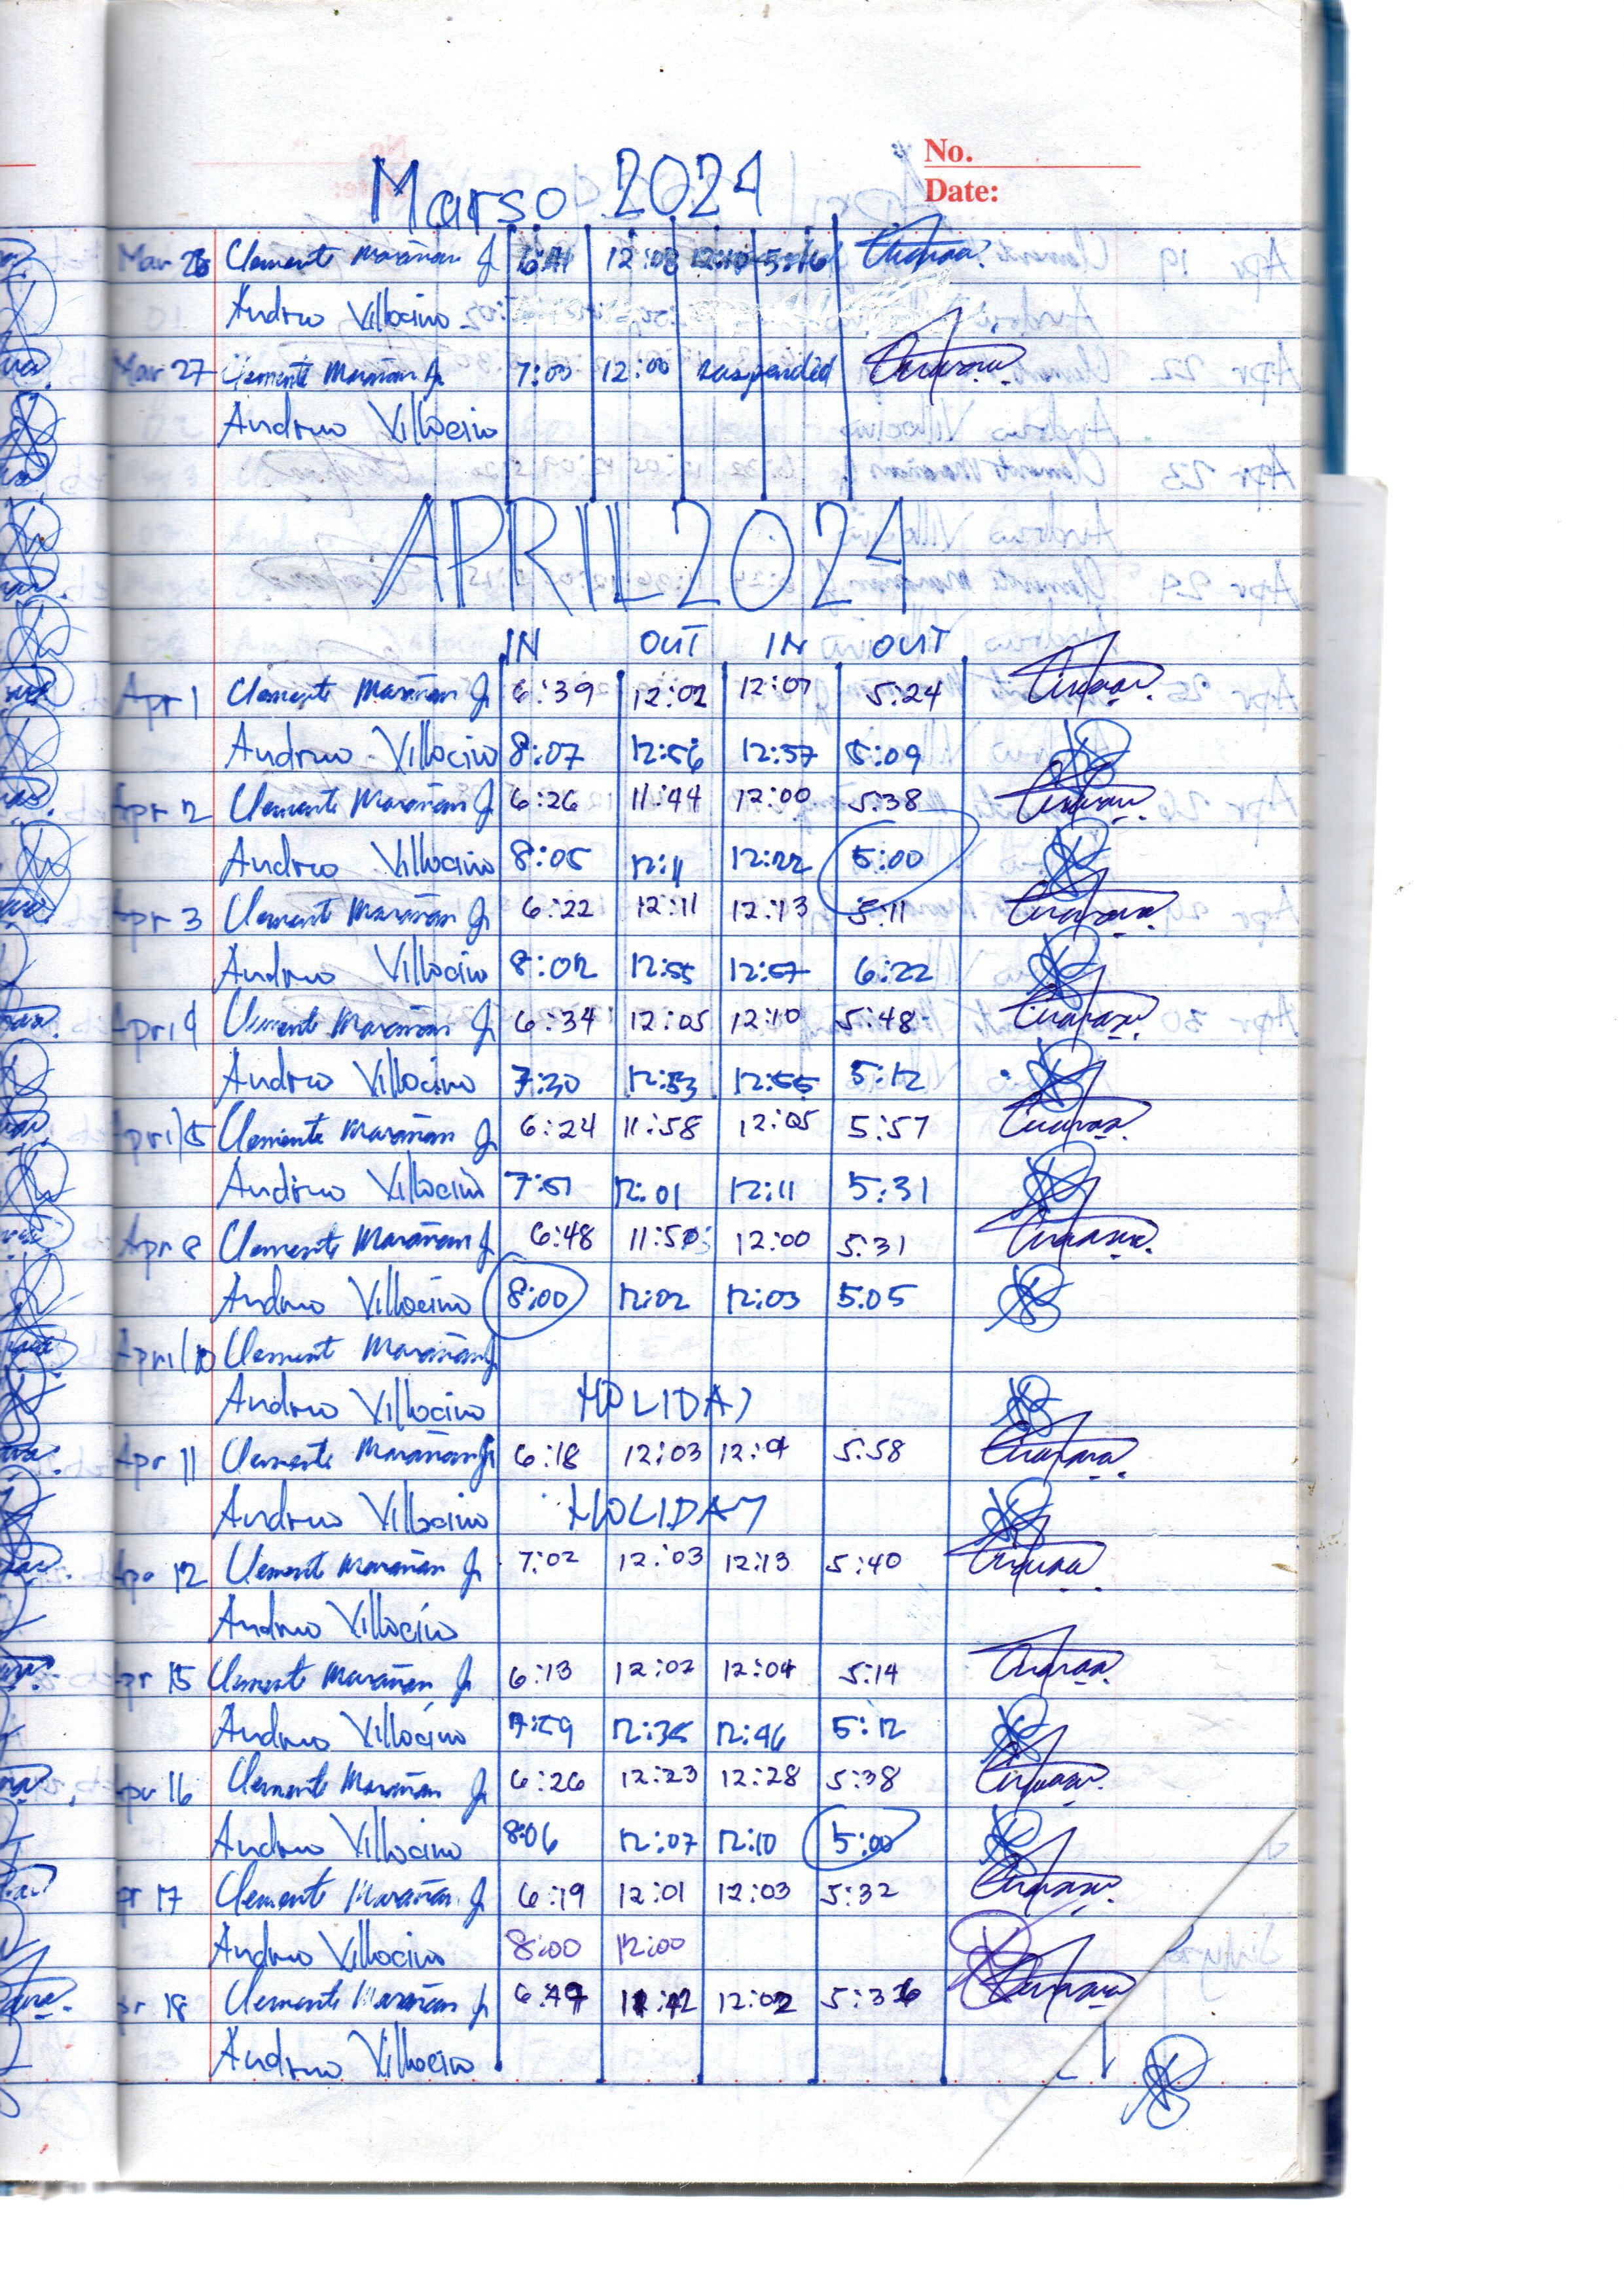 No.
Date:
Marso 2024
Mar 26 Clemente Marañan Jr 12:08 5:16
Andrno Villocino
Mar 27 Clemente Marañan Jr 7:00 12:00 suspended
Andrno Villocino
APRIL 2024
IN OUT IN OUT
Apr 1 Clemente Marañan Jr 6:39 12:02 12:07 5:24
Andrno Villocino 8:07 12:56 12:57 5:09
Apr 2 Clemente Marañan Jr 6:26 11:44 12:00 5:38
Andrno Villocino 8:05 12:11 12:22 5:00
Apr 3 Clemente Marañan Jr 6:22 12:11 12:13 5:11
Andrno Villocino 8:02 12:55 12:57 6:22
April 4 Clemente Marañan Jr 6:34 12:05 12:10 5:48
Andrno Villocino 7:30 12:53 12:55 5:12
April 5 Clemente Marañan Jr 6:24 11:58 12:05 5:57
Andrno Villocino 7:51 12:01 12:11 5:31
Apr 8 Clemente Marañan Jr 6:48 12:00 5:31
Andrno Villocino 8:00 12:02 12:03 5:05
April 10 Clement Marañan Jr
Andrno Villocino HOLIDAY
Apr 11 Clemente Marañan Jr 6:18 12:03 5:58
Andrno Villocino HOLIDAY
Apr 12 Clemente Marañan Jr 7:02 12:03 12:13 5:40
Andrno Villocino
Apr 15 Clemente Marañan Jr 6:13 12:02 12:04 5:14
Andrno Villocino 7:59 12:35 12:46 5:12
Apr 16 Clemente Marañan Jr 6:26 12:23 12:28 5:38
Andrno Villocino 8:06 12:07 12:10 5:00
pr 17 Clemente Marañan Jr 6:19 12:01 12:03 5:32
Andrno Villocino 8:00 12:00
pr 18 Clemente Marañan Jr 12:02 5:36
Andrno Villocino